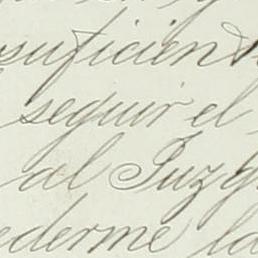 suficien
seguir el
al Juzg
ederme la